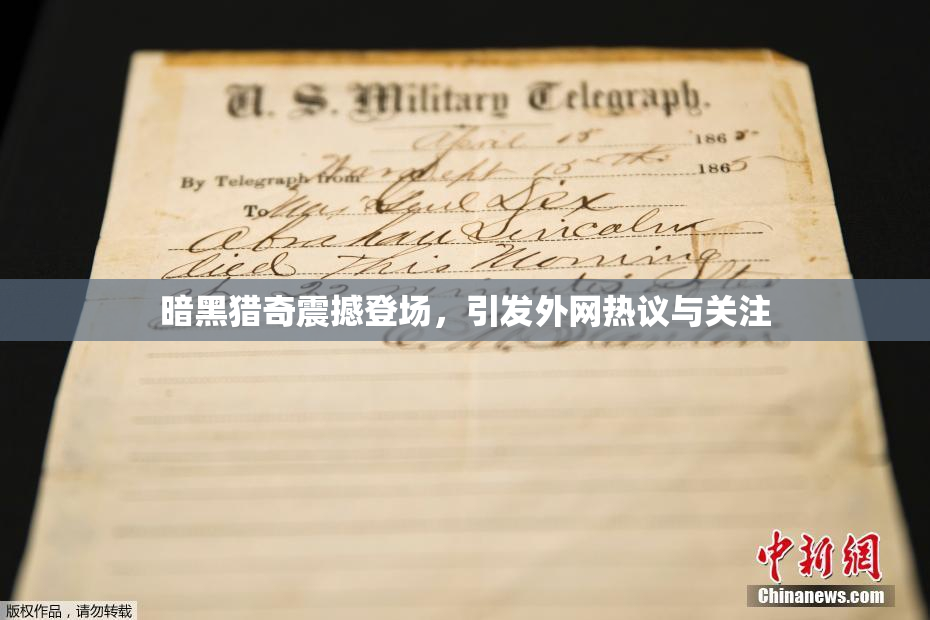 U. S. Military Telegraph.
April 15 1865
By Telegraph from War Dept 15th 1865
To Maj Genl Dix
Abraham Lincoln
died This Morning
at 22 minutes after
暗黑猎奇震撼登场，引发外网热议与关注
中新網
Chinanews.com
版权作品，请勿转载